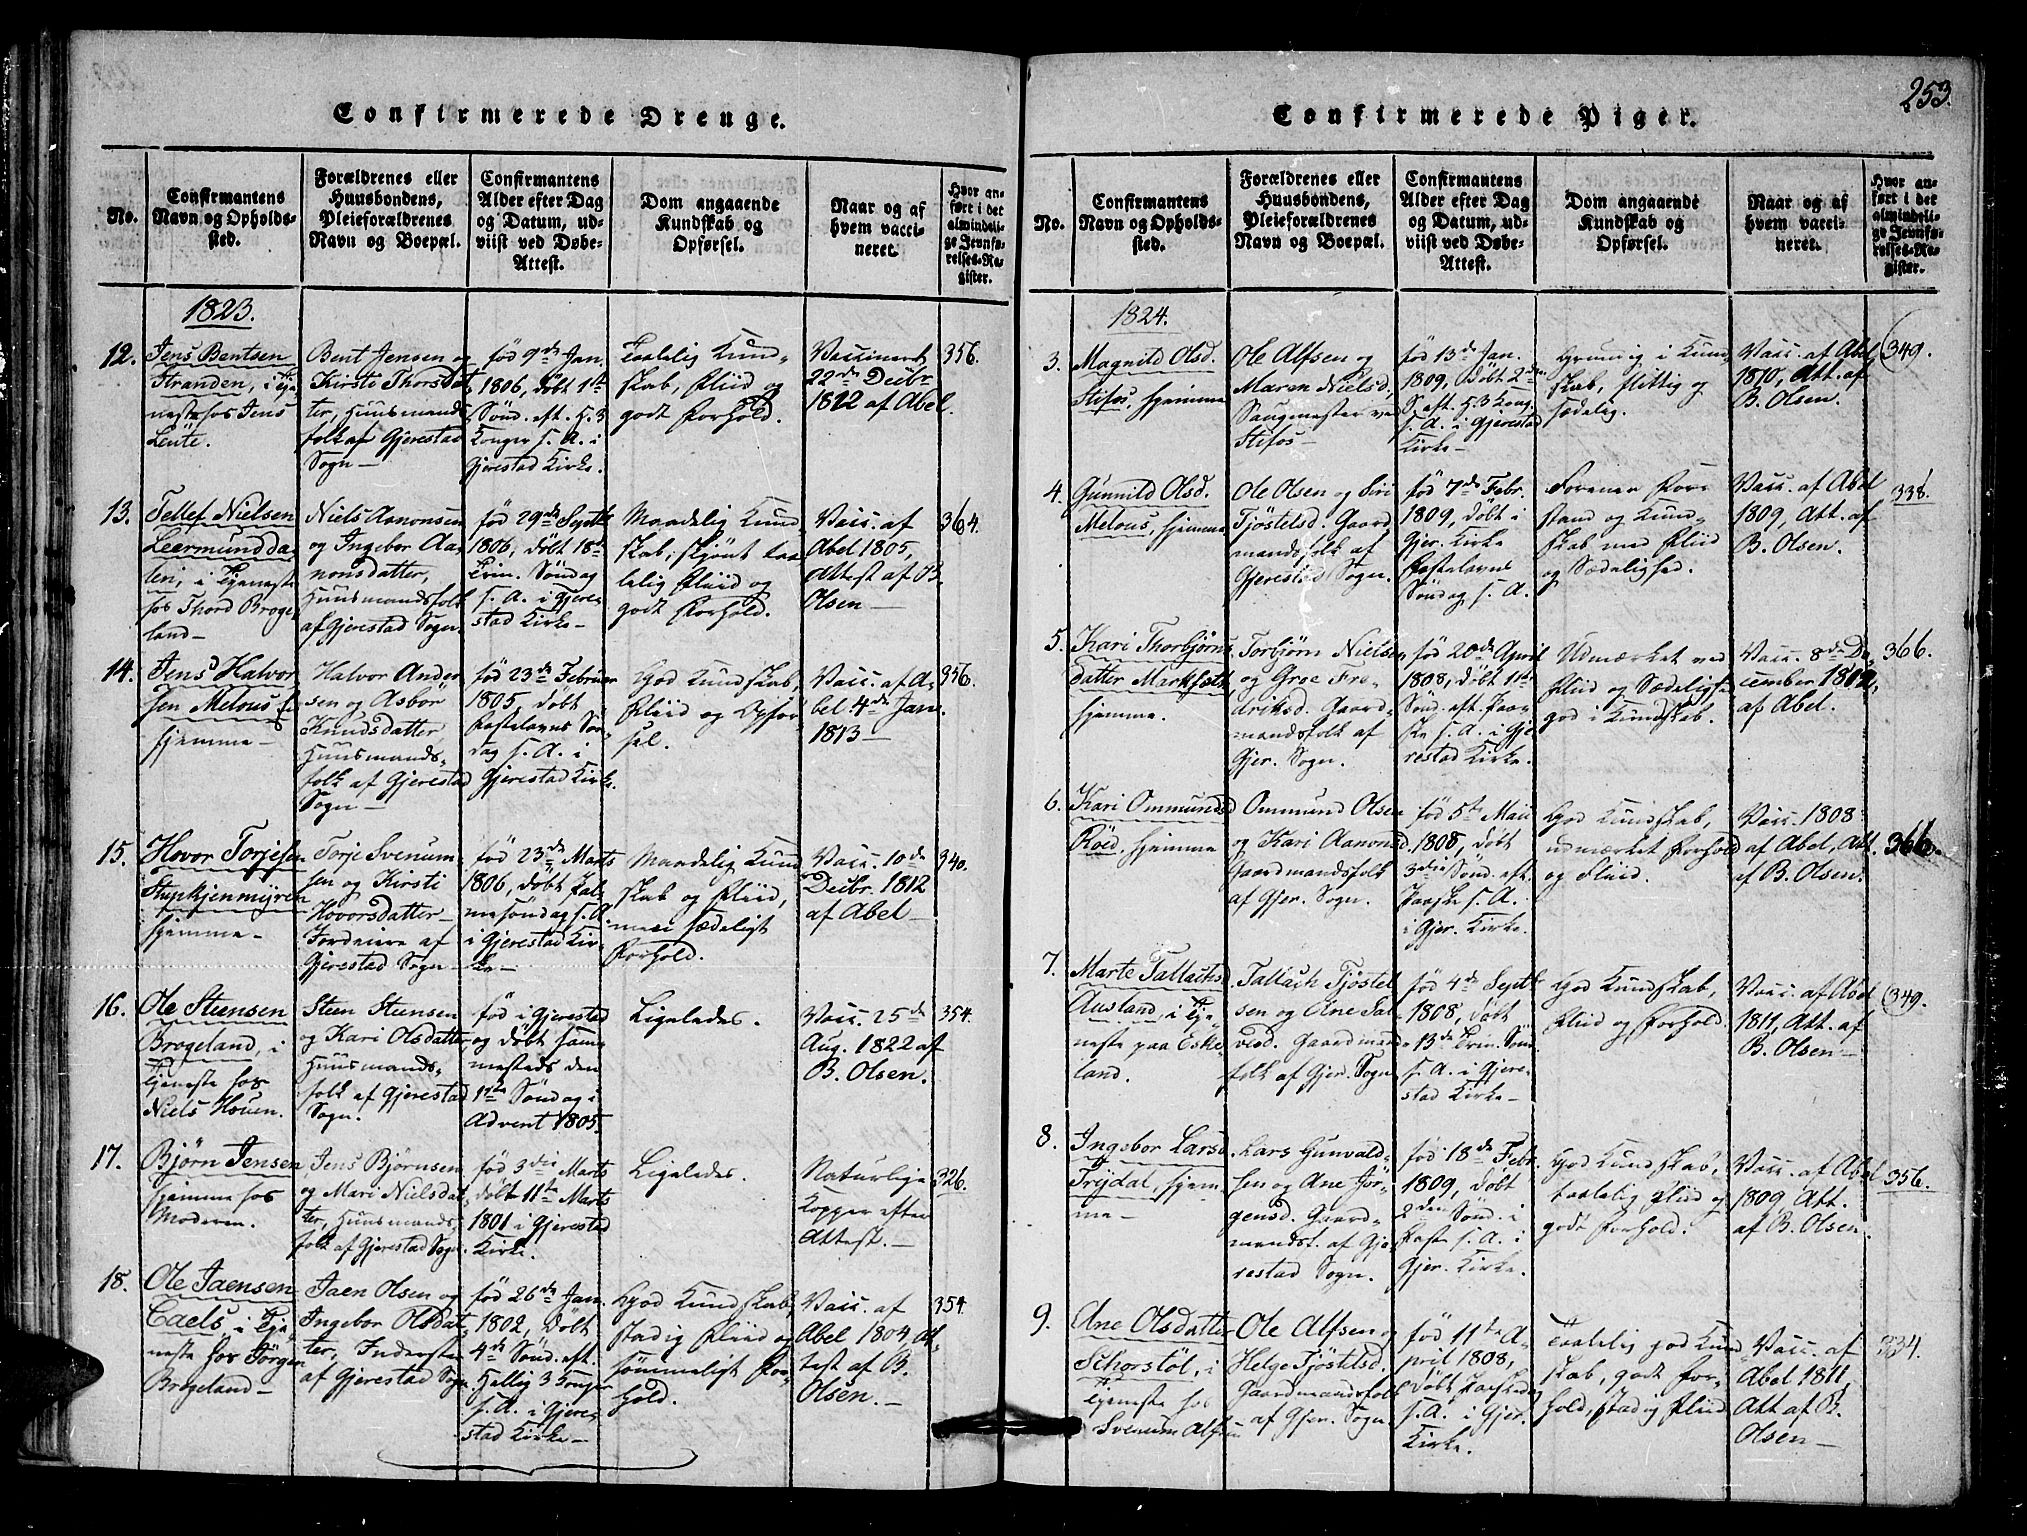 253.
Confirmerede Drenge.
No.
Confirmantens
Navn og Opholds-
sted.
Forældrenes eller
Huusbondens,
Pleieforældrenes
Navn og Boepæl.
Confirmantens
Alder efter Dag
og Datum, ud-
viist ved Døbe-
Attest.
Dom angaaende
Kundskab og
Opførsel.
Naar og af
hvem vacci-
neret.
Hvor an-
ført i det
almindeli-
ge Jevnfø-
relses-Re-
gister.
1823.
12.
Jens Bentsen
Stranden, i Tje-
neste hos Jens
Lente.
Bent Jensen og
Kirsti Thorsdat-
ter, Huusmands-
folk af Gjerestad
Sogn —
fød 9de Jan.
1806, døbt 1ste
Sønd. eft. H. 3
Konger s. A. i
Gjerestad Kirke.
Taalelig Kund-
skab, Fliid og
godt Forhold.
Vaccineret
22de Decbr.
1812 af Abel.
356.
13.
Tellef Nielsen
Leermundda-
len, i Tjeneste
hos Thord Broge-
land —
Niels Aanonsen
og Ingebor Aa-
nonsdatter,
Huusmandsfolk
af Gjerestad Sogn.
fød 29de Septb.
1806, døbt 18de
Trin. Søndag
s. A. i Gjere-
stad Kirke —
Maadelig Kund-
skab, skjønt taa-
lelig Fliid og
godt Forhold.
Vacc. af
Abel 1805,
Attest af B.
Olsen —
364.
14.
Jens Halvor-
sen Melous
hjemme —
Halvor Ander-
sen og Asbör
Knudsdatter
Huusmands-
folk af Gjerestad
Sogn —
fød 23de Februar
1805, døbt
Fastelavns Søn-
dag s. A. i
Gjerestad Kirke.
God Kundskab,
Fliid og Opfør-
sel.
Vacc. af A-
bel 4de Jan.
1813 —
356.
15.
Hovor Torjesen
Stupkjenmyren
hjemme —
Torje Svenum-
sen og Kirsti
Hovorsdatter —
Jordeiere af
Gjerestad Sogn —
fød 23de Marts
1806, døbt Pal-
mesøndag s. A.
i Gjerestad Kir-
ke —
Maadelig Kund-
skab og Fliid,
men sædeligt
Forhold.
Vacc. 10de
Decbr. 1812
af Abel —
340.
16.
Ole Steensen
Brogeland, i
Tjeneste hos
Niels Houen.
Steen Steensen
og Kari Olsdatter
Huusmands-
folk af Gjerestad
Sogn.
fød i Gjerestad
og døbt sam-
mesteds den
1ste Søndag i
Advent 1805.
Ligeledes.
Vacc. 25de
Aug. 1822 af
B. Olsen.
354.
17.
Bjørn Jensen
hjemme hos
Moderen.
Jens Bjørnsen
og Mari Nielsdat-
ter, Huusmands-
folk af Gjerestad Sogn.
fød 3die Marts
døbt 11te Marts
1801 i Gjerestad
Kirke.
Ligeledes.
Naturlige
Kopper efter
Attest. —
326.
18.
Ole Jaensen
Caels i Tje-
neste hos Jörgen
Brogeland —
Jaen Olsen og
Ingebor Olsdat-
ter, Inderster
af Gjerestad Sogn.
fød 26de Jan.
1802, døbt
4de Sønd. eft.
Hellig 3 Konger
s. A. i Gjere-
stad Kirke —
God Kundskab,
stadig Fliid og
sømmeligt For-
hold.
Vacc. af
Abel 1804, At-
test af B.
Olsen. —
354.
Confirmerede Piger.
No.
Confirmantens
Navn og Opholds-
sted.
Forældrenes eller
Huusbondens,
Pleieforældrenes
Navn og Boepæl.
Confirmantens
Alder efter Dag
og Datum, ud-
viist ved Døbe-
Attest.
Dom angaaende
Kundskab og
Opførsel.
Naar og af
hvem vacci-
neret.
Hvor an-
ført i det
almindeli-
ge Jevnfø-
relses-Re-
gister.
1824.
3.
Magnild Olsd.
Stifos, hjemme
Ole Alfsen og
Maren Nielsd,
Saugmester ved
Stifos —
fød 13de Jan.
1809, døbt 2den
S. eft. H. 3 Kong.
s. A. i Gjerestad
Kirke —
Grundig i Kund-
skab, flittig og
sædelig.
Vacc. af Abel
1810, Att. af
B. Olsen.
349.
4.
Gunnild Olsd.
Melous, hjemme
Ole Olsen og Siri
Tjöstelsd. Gaard-
mandsfolk af
Gjerestad Sogn.
fød 7de Febr.
1809, døbt i
Gjer. Kirke
Fastelavns
Søndag s. A.
Forener For-
stand og Kund-
skab med Fliid
og Sædelighed.
Vacc. af Abel
1809, Att. af
B. Olsen.
338.
5.
Kari Thorbjörns
datter Markseth
hjemme.
Torbjörn Nielsen
og Groe Fre-
driksd. Gaard-
mandsfolk af
Gjer. Sogn.
fød 20de April
1808, døbt 1ste
Sønd. eft. Paa-
ske s. A. i Gje-
restad Kirke.
Udmærket ved
Fliid og Sædelighed
god i Kundskab.
Vacc. 8de De-
cember 1812,
af Abel.
366.
6.
Kari Ommundsd
Röed, hjemme
Ommund Olsen
og Kari Aanonsd.
Gaardmandsfolk
af Gjer. Sogn.
fød 5te Maii
1808, døbt
3die Sønd. eft.
Paaske s. A.
i Gjer. Kirke.
God Kundskab,
udmærket Forhold
og Fliid.
Vacc. 1808
af Abel, Att.
af B. Olsen.
366.
7.
Marte Tallachsd
Ausland, i Tje-
neste paa Eske-
land.
Tallach Tjöstel-
sen og Ane Sal-
vesd. Gaardmands-
folk af Gjer. Sogn
fød 4de Septb.
1808, døbt
13de Trin. Sönd.
s. A. i Gjere-
stad Kirke —
God Kundskab,
Fliid og Forhold.
Vacc. af Abel
1811, Att. af
B. Olsen —
349.
8.
Ingebor Larsd
Trydal, hjem-
me —
Lars Gunvald-
sen og Ane Jör-
gensd. Gaard-
mandsf. af Gje-
restad Sogn.
fød 18de Febr.
1809, døbt
2den Sønd. i
Faste s. A. i
Gjer. Kirke.
God Kundskab,
taalelig Fliid og
godt Forhold.
Vacc. af Abel
1809 Att.
af B. Olsen.
356.
9.
Ane Olsdatter
Schorstöl, i
Tjeneste hos
Svenum Alfsen
Ole Alfsen og
Helge Tjöstelsd.
Gaardmandsfolk
af Gjer. Sogn
fød 11te A-
pril 1808,
døbt Paaskedag
s. A. i Gjer.
Kirke.
Taalelig god Kund-
skab, godt For-
hold, stadig Fliid
Vacc. af
Abel 1811,
Att af B.
Olsen —
334.